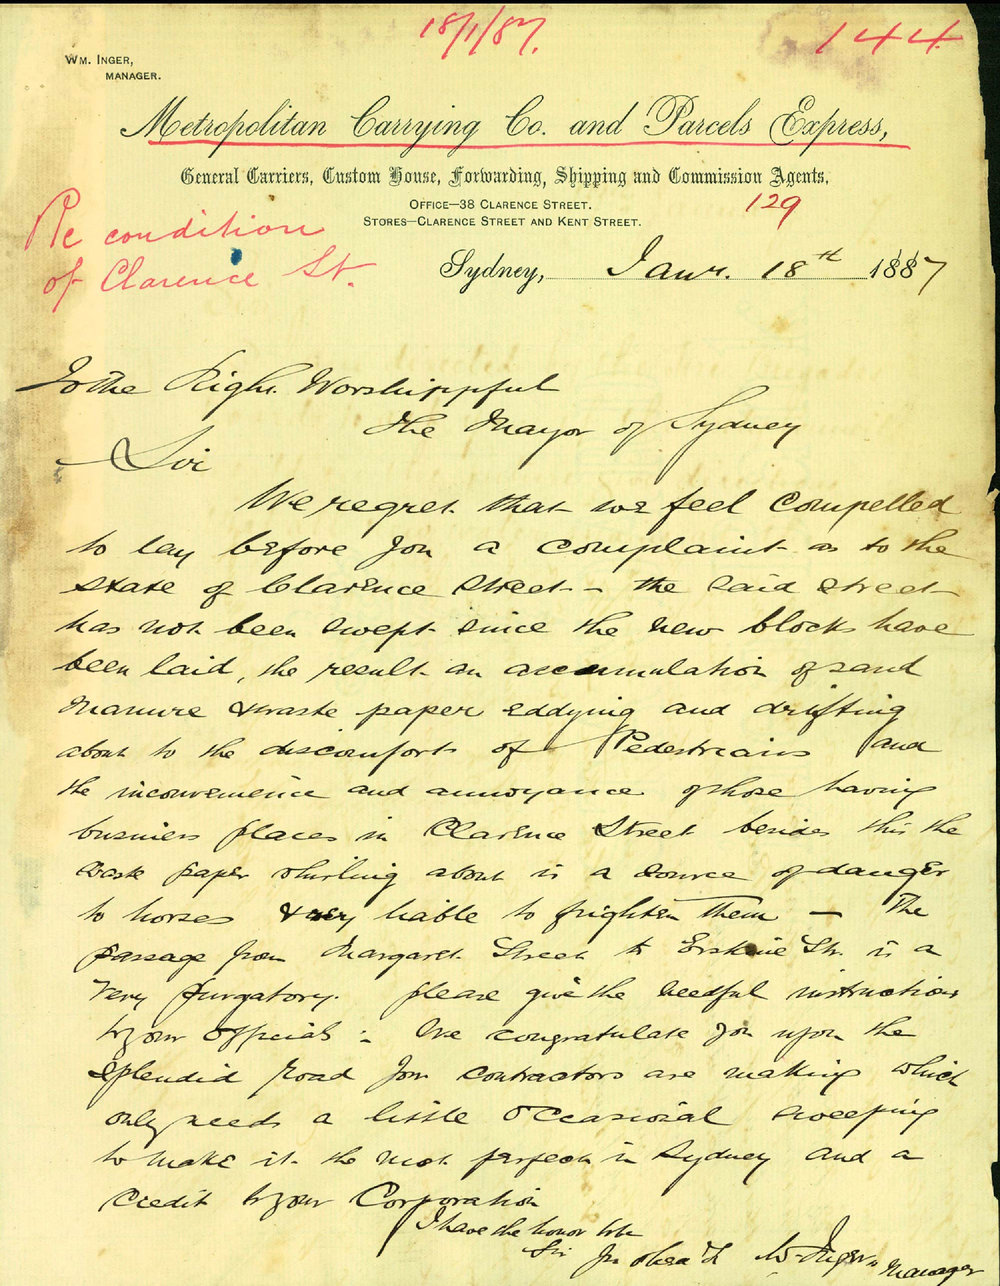 18/1/87.
144
WM. INGER,
MANAGER.
Metropolitan Carrying Co. and Parcels Express,
General Carriers, Custom House, Forwarding, Shipping and Commission Agents,
OFFICE—38 CLARENCE STREET.
129
STORES—CLARENCE STREET AND KENT STREET.
Re condition
of Clarence St.
Sydney, Janr. 18th 1887
To the Right Worshippful
The Mayor of Sydney
Sir
We regret that we feel compelled
to lay before you a complaint as to the
state of Clarence Street - the said street
has not been swept since the new blocks have
been laid, the result an accumulation of sand
manure & waste paper eddying and drifting
about to the discomfort of Pedestrians and
the inconvenience and annoyance of those having
business places in Clarence Street besides this the
waste paper whirling about is a source of danger
to horses & very liable to frighten them — The
passage from Margaret Street to Erskine Str. is a
very purgatory. please give the needful instructions
to your officials : We congratulate you upon the
splendid road your contractors are making which
only needs a little occasional sweeping
to make it the most perfect in Sydney and a
credit to your Corporation
I have the honor to be
Sir Yr obedt W. Inger Manager